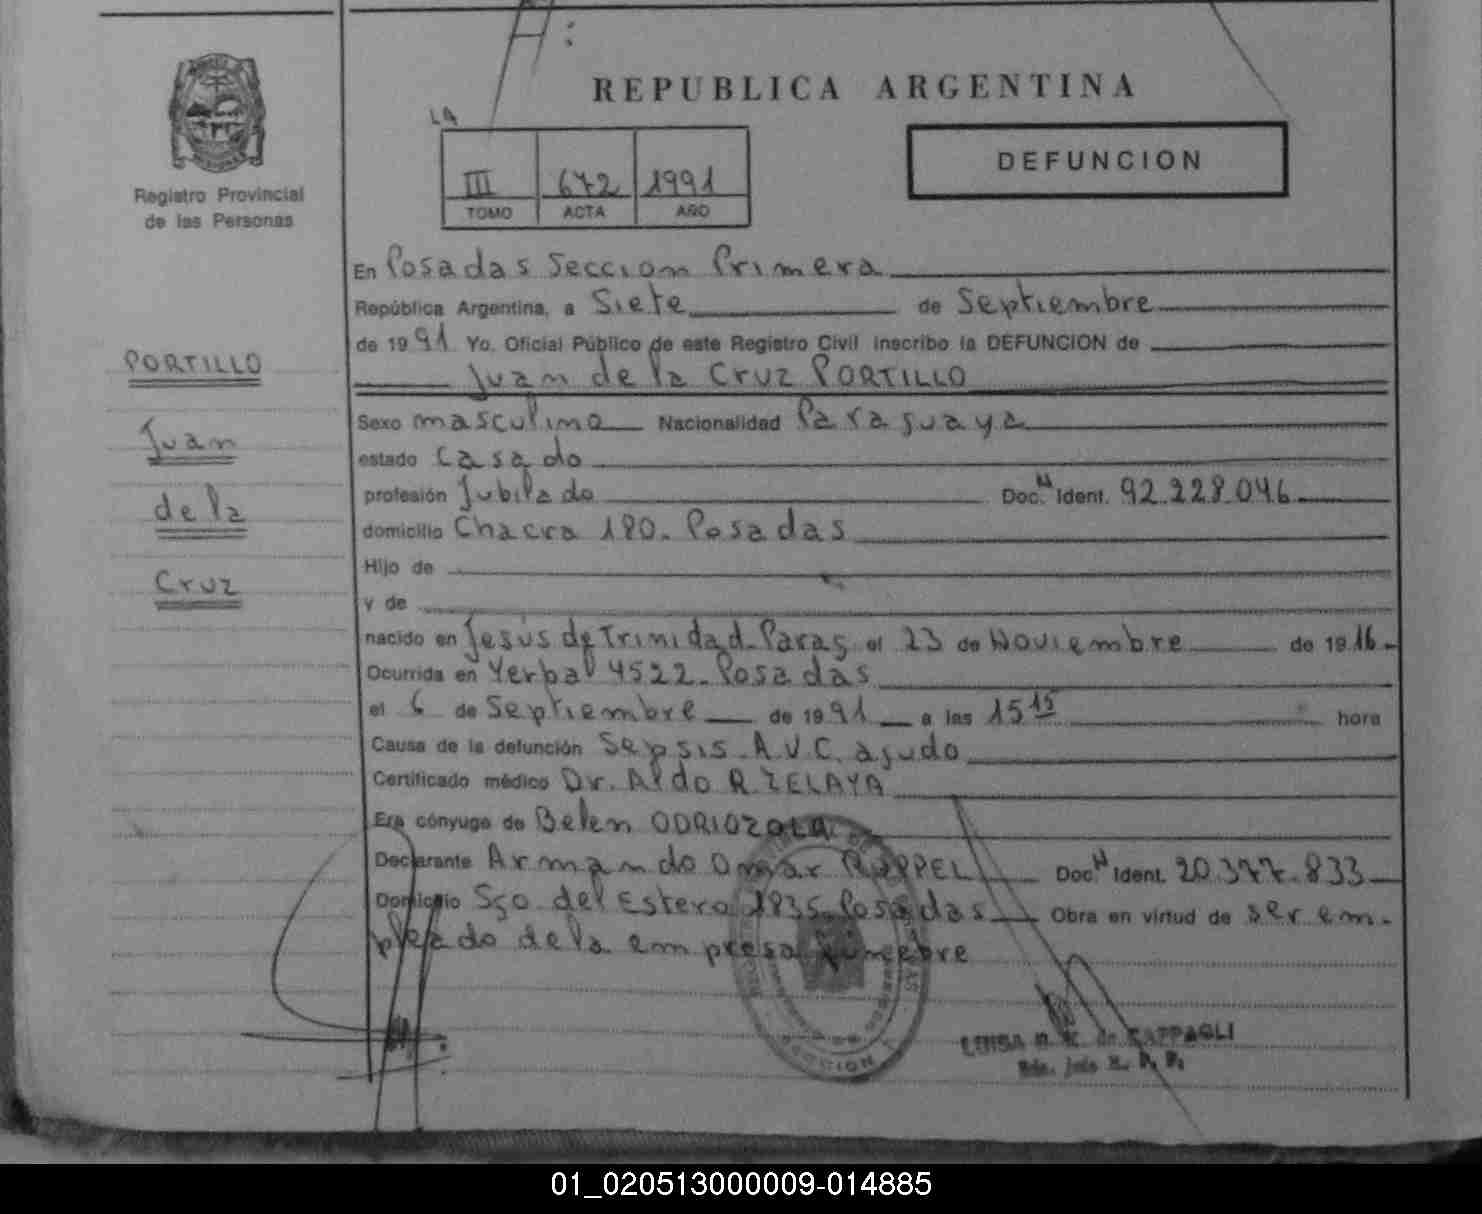 REPUBLICA ARGENTINA
LA
III 672 1991
TOMO ACTA AÑO
DEFUNCION
Registro Provincial
de las Personas
PORTILLO
Juan
de la
Cruz
En Posadas Sección Primera
República Argentina, a Siete de Septiembre
de 1991 Yo, Oficial Público de este Registro Civil inscribo la DEFUNCION de
Juan de la Cruz PORTILLO
Sexo masculino Nacionalidad Paraguaya
estado Casado
profesión Jubilado Doc. N Ident. 92.228.046
domicilio Chacra 180. Posadas
Hijo de
y de
nacido en Jesús de Trinidad. Parag. el 23 de Noviembre de 1916
Ocurrida en Yerbal 4522. Posadas
el 6 de Septiembre de 1991 a las 15 15 hora
Causa de la defunción Sepsis. A.V.C. agudo
Certificado médico Dr. Aldo R. ZELAYA
Era cónyuge de Belen ODRIOZOLA
Declarante Armando Omar RUPPEL Doc. N Ident. 20.377.833
Domicilio Sgo del Estero 1835. Posadas Obra en virtud de ser em-
pleado de la empresa fúnebre
LUISA de CAPPAGLI
01_020513000009-014885